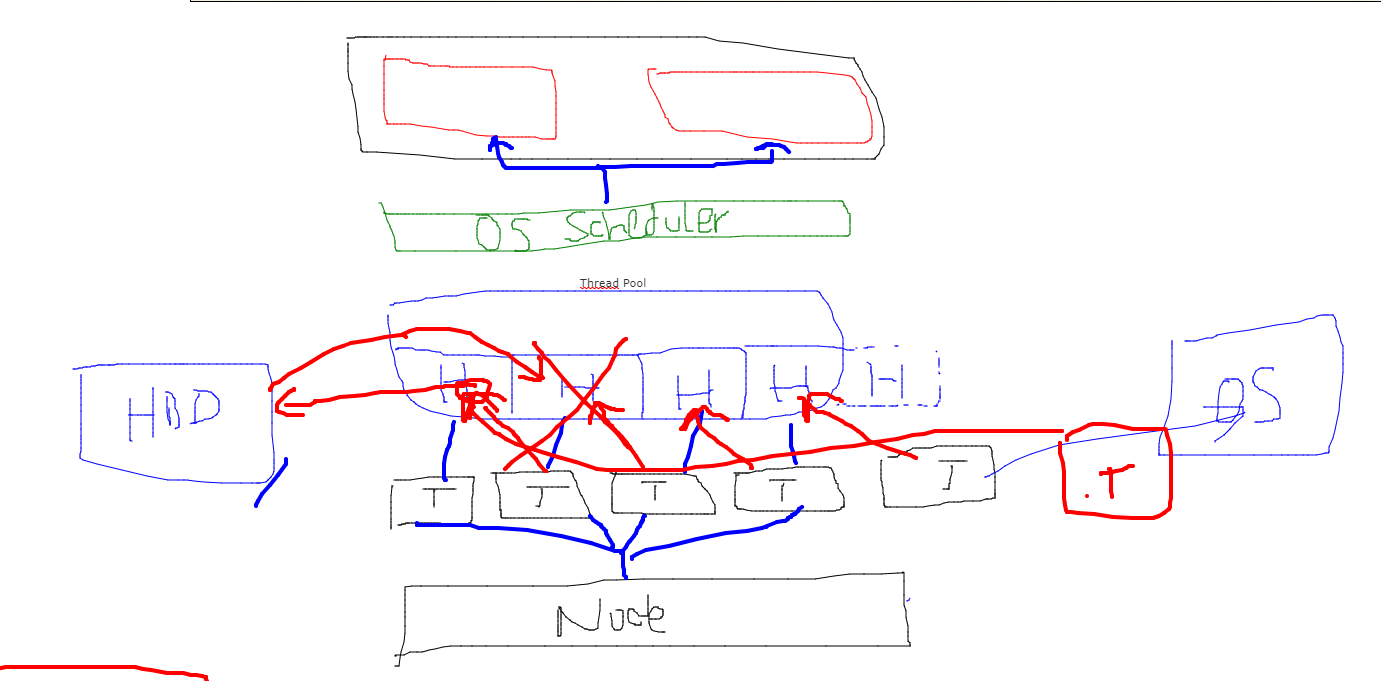 OS Scheduler
Thread Pool
HBD
H H H H H
OS
T T T T T .T
Node